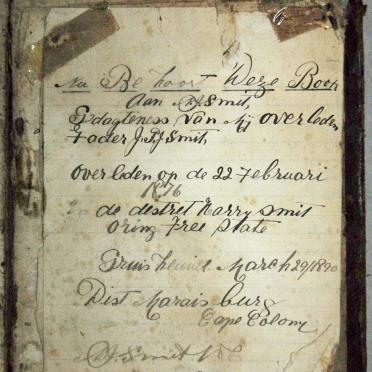 Nu Be hoort Deze Boek
Aan A J Smit,
Gedagteness van Mij overleden
Fader J. P. J Smit,
overleden op de 22 Februari
1876
de destret Harry smit
oring Free State
March 29/1890
Dist Maraisburg
Cape Colony